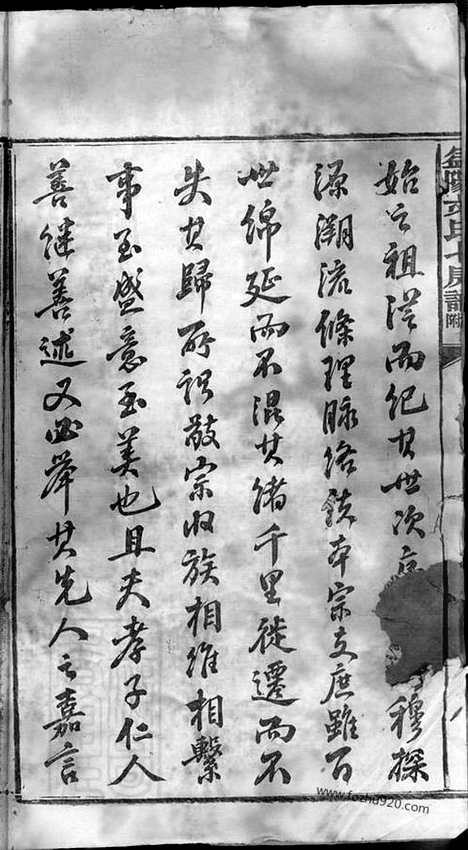 始之祖從而纪其世次穆探
源溯流條理脉络本宗支庶雖百
世綿延而不混其緒千里徙遷而不
失其歸所謂敬宗收族相維相繫
事至盛意至美也且夫孝子仁人
善继善述又必舉其先人之嘉言
www.fozhu920.com